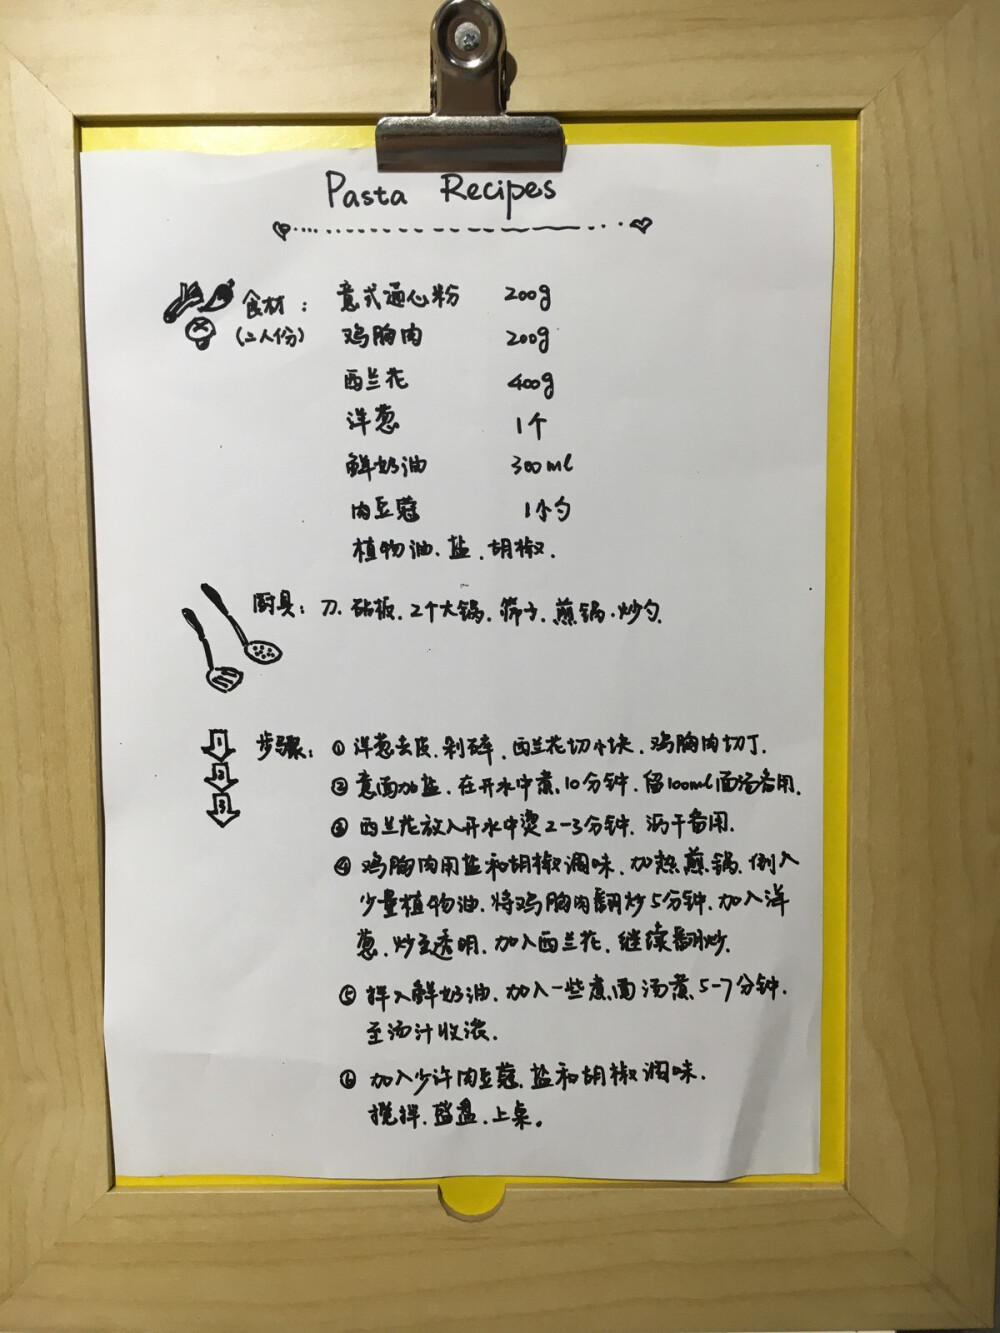 Pasta Recipes
食材： 意式通心粉 200g
(二人份) 鸡胸肉 200g
西兰花 400g
洋葱 1个
鲜奶油 300ml
肉豆蔻 1小勺
植物油、盐、胡椒.
厨具：刀、砧板、2个大锅、筛子、煎锅、炒勺.
1
2
3
步骤：① 洋葱去皮、剁碎、西兰花切小块、鸡胸肉切丁.
② 意面加盐、在开水中煮、10分钟、留100ml面汤备用.
③ 西兰花放入开水中烫2-3分钟、沥干备用.
④ 鸡胸肉用盐和胡椒调味、加热煎锅、倒入
少量植物油、将鸡胸肉翻炒5分钟、加入洋
葱、炒至透明、加入西兰花、继续翻炒.
⑤ 拌入鲜奶油、加入一些煮面汤煮、5-7分钟.
至汤汁收浓.
⑥ 加入少许肉豆蔻、盐和胡椒调味.
搅拌、盛盘、上桌。